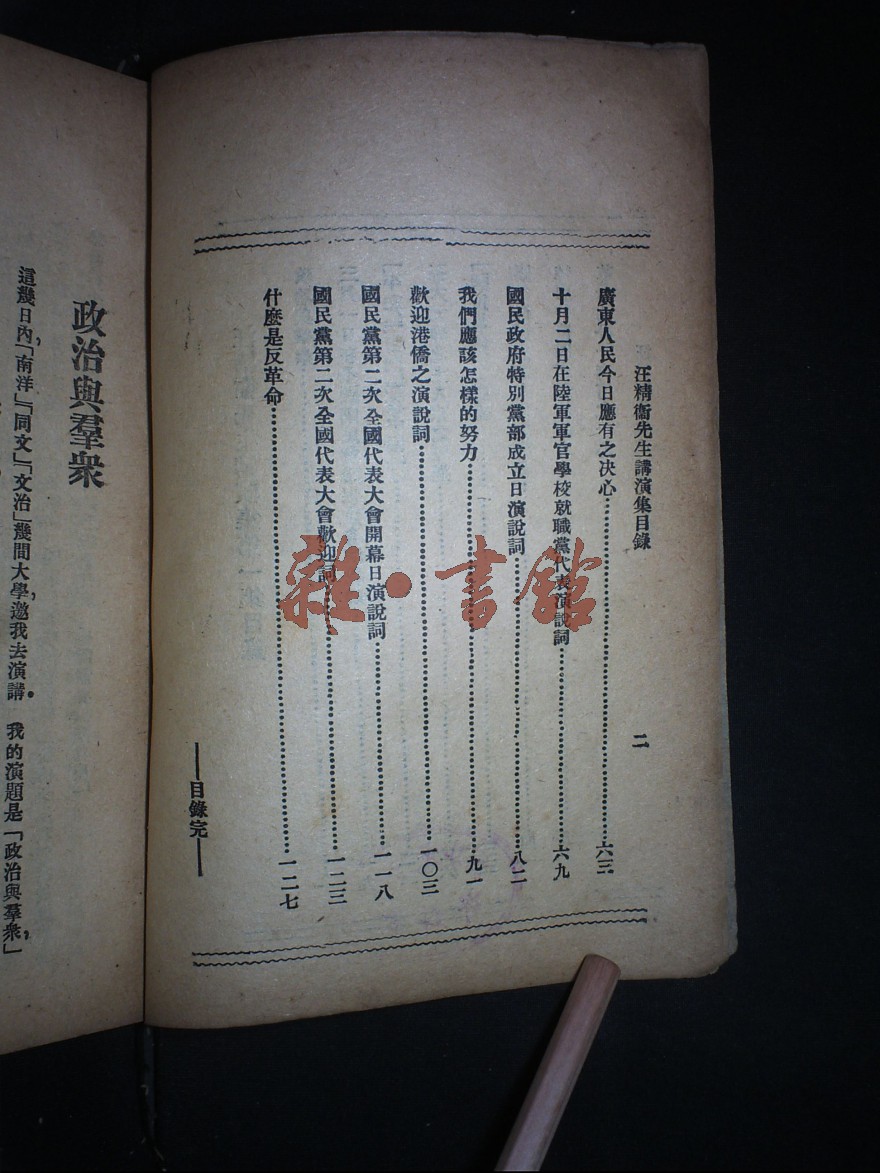 汪精衞先生講演集目錄 二
廣東人民今日應有之決心……六三
十月二日在陸軍軍官學校就職黨代表演說詞……六九
國民政府特別黨部成立日演說詞……八二
我們應該怎樣的努力……九一
歡迎港僑之演說詞……一〇三
國民黨第二次全國代表大會開幕日演說詞……一一八
國民黨第二次全國代表大會歡迎詞……一二三
什麼是反革命……一二七
——目錄完——
政治與羣衆
這幾日內，「南洋」「同文」「文治」幾間大學，邀我去演講。我的演題是「政治與羣衆，」
雜·書館